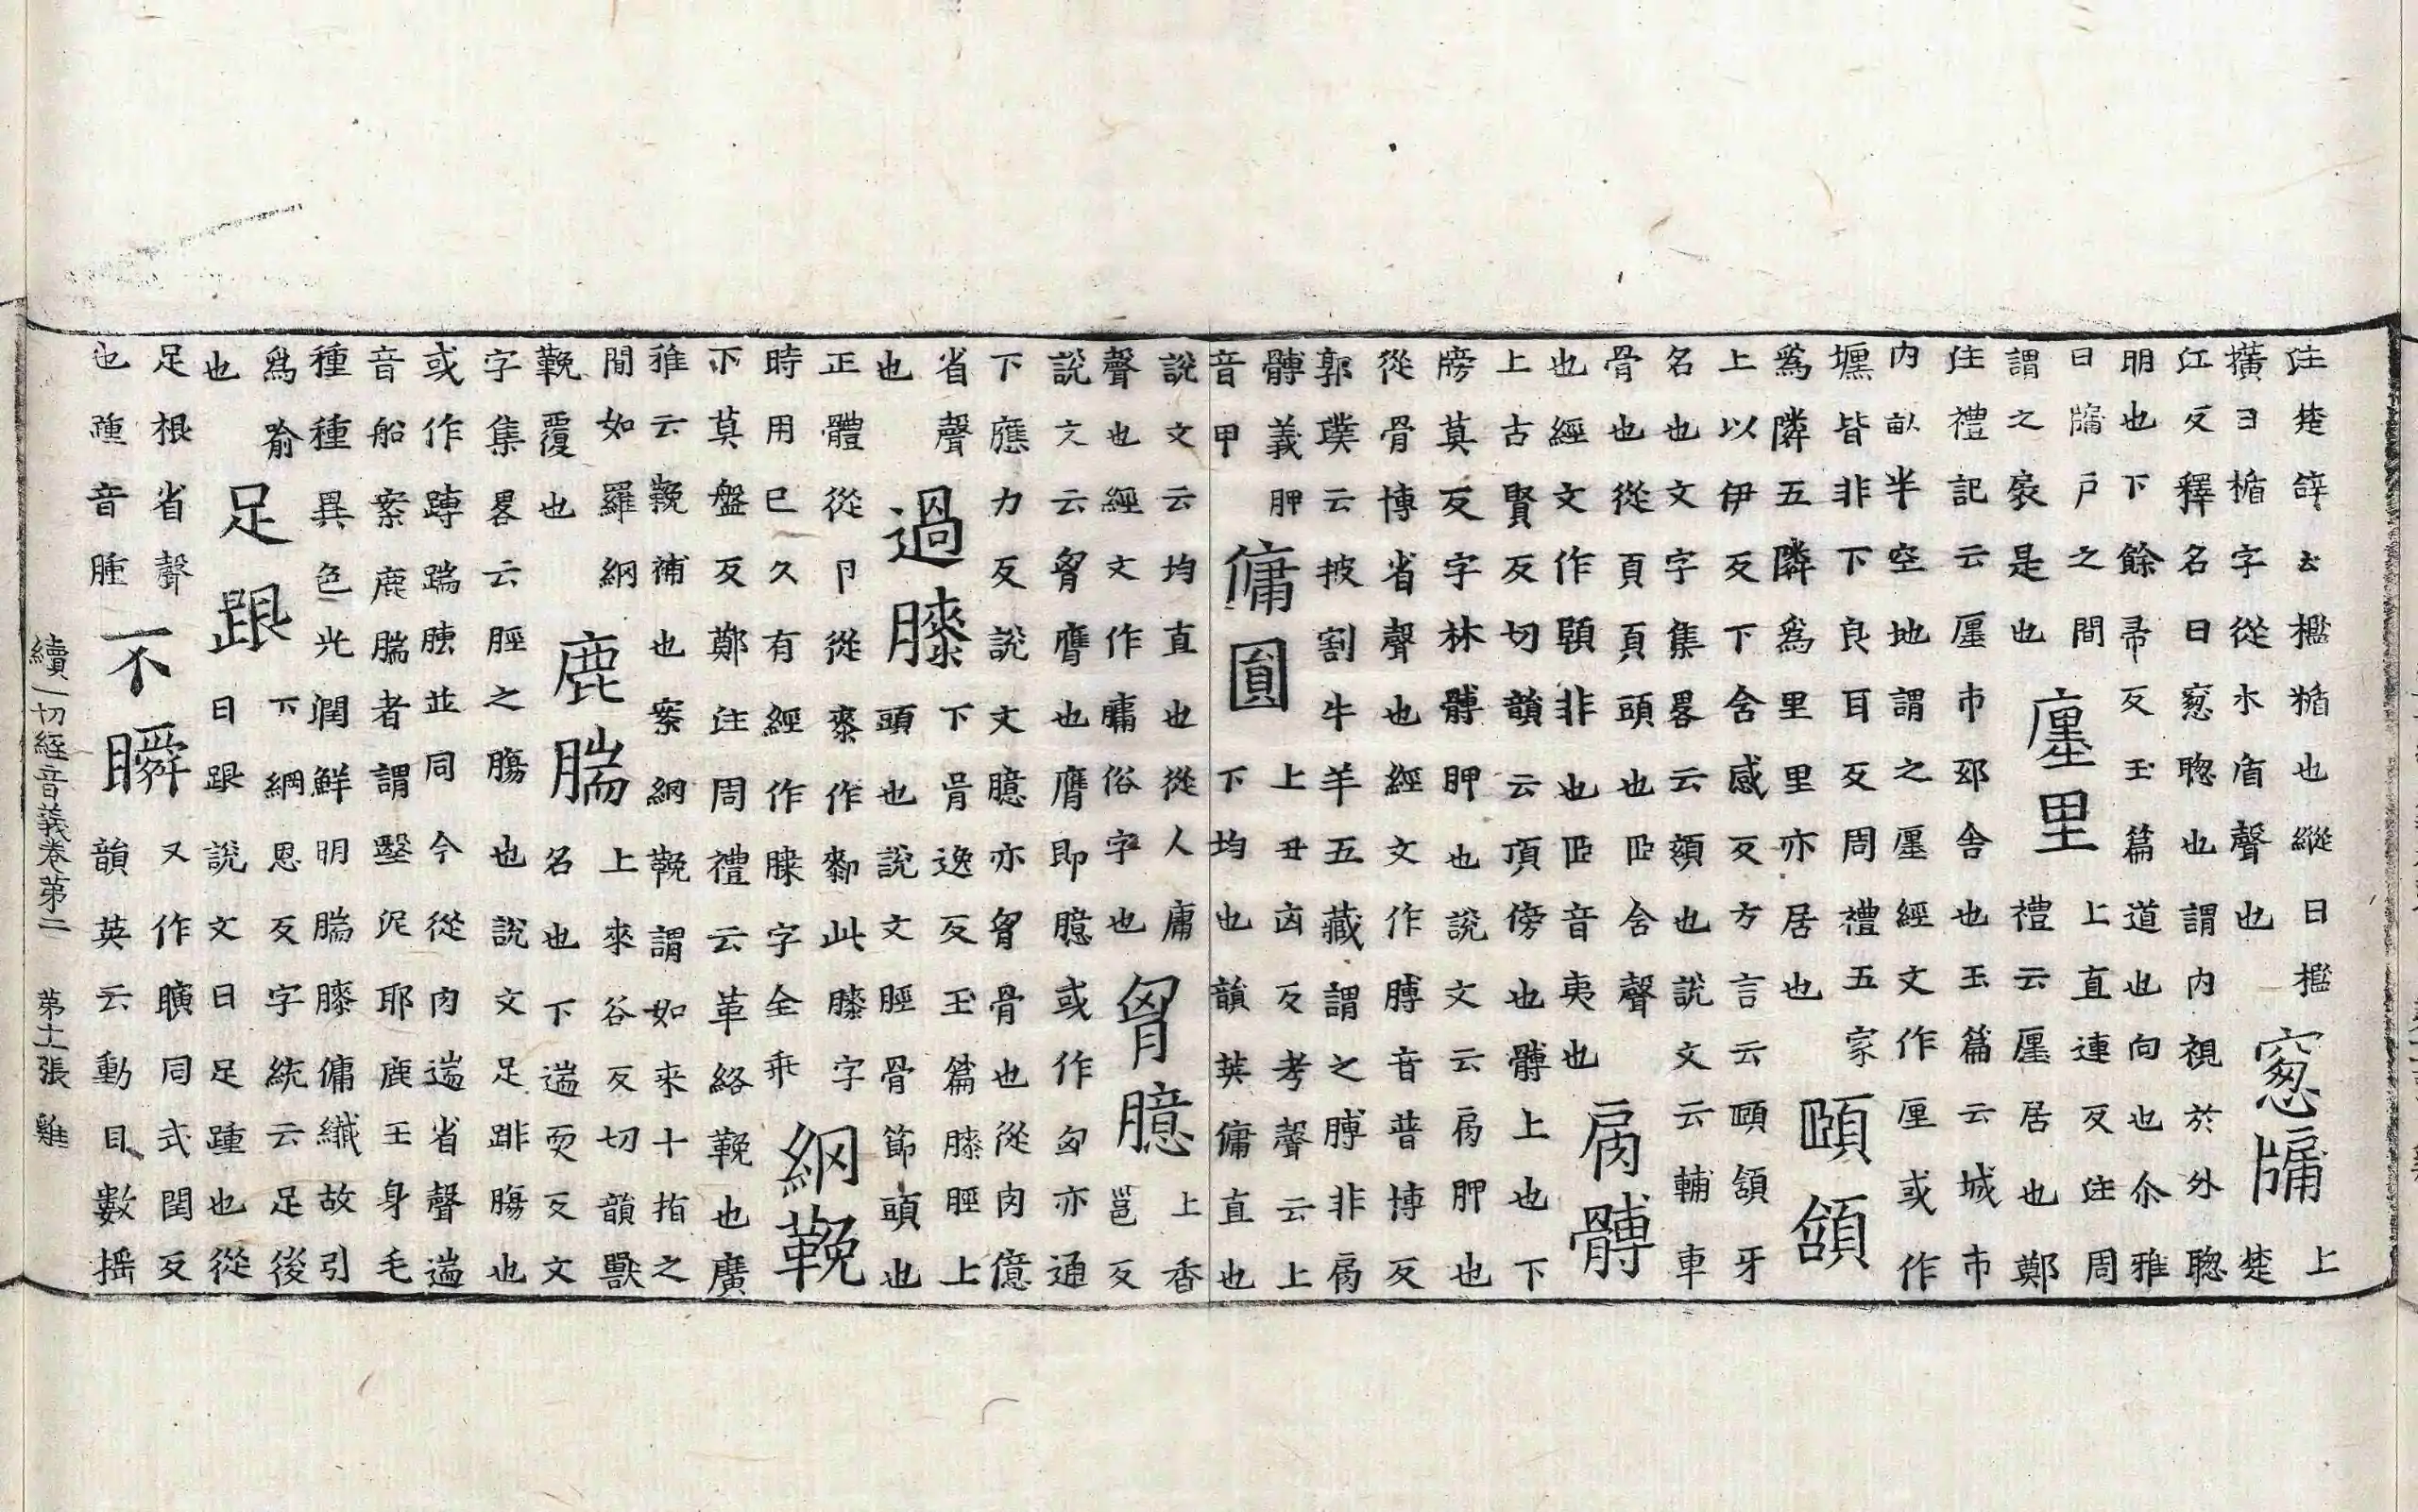 注楚辞云檻楯也縱曰檻
橫曰楯字從木盾聲也
窓牖
上
楚
江反釋名曰窓聰也謂內視於外聰
明也下餘帚反玉篇道也向也尒雅
曰牖戶之間
謂之扆是也
廛里
上直連反注周
禮云廛居也鄭
注禮記云廛市邸舍也玉篇云城市
內畝半空地謂之廛經文作厘或作
壥皆非下良耳反周禮五家
爲隣五隣爲里里亦居也
頤頷
上以伊反下含感反方言云頤頷牙
名也文字集畧云頷也說文云輔車
骨也從頁頁頭也𦣞含聲
也經文作顊非也𦣞音夷也
肩髆
上古賢反切韻云頂傍也髆上也下
牓莫反字林髆胛也說文云肩胛也
從骨博省聲也經文作膊音普博反
郭璞云披割牛羊五藏謂之膊非肩
髆義胛
音甲
傭圓
上丑凶反考聲云上
下均也韻英傭直也
說文云均直也從人庸
聲也經文作膅俗字也
胷臆
上香
邕反
說文云胷膺也膺即臆或作匈亦通
下應力反說文臆亦胷骨也從肉億
省聲
也
過膝
下胥逸反玉篇膝脛上
頭也說文脛骨節頭也
正體從卪從桼作厀此膝字
時用已久有經作䐑字全乖
網鞔
下莫盤反鄭注周禮云革絡鞔也廣
雅云鞔補也案網鞔謂如來十指之
間如羅網
鞔覆也
鹿腨
上來谷反切韻獸
名也下遄耎反文
字集畧云脛之腸也說文足跳腸也
或作蹲踹並同今從肉遄省聲遄
音船案鹿腨者謂瑿泥耶鹿王身毛
種種異色光潤鮮明腨膝傭纖故引
爲喻
也
足跟
下網恩反字統云足後
曰跟說文曰足踵也從
足根省聲
也踵音腫
不瞬
又作瞚同式閏反
韻英云動目數搖
續一切經音義卷第二 第十一張 雞